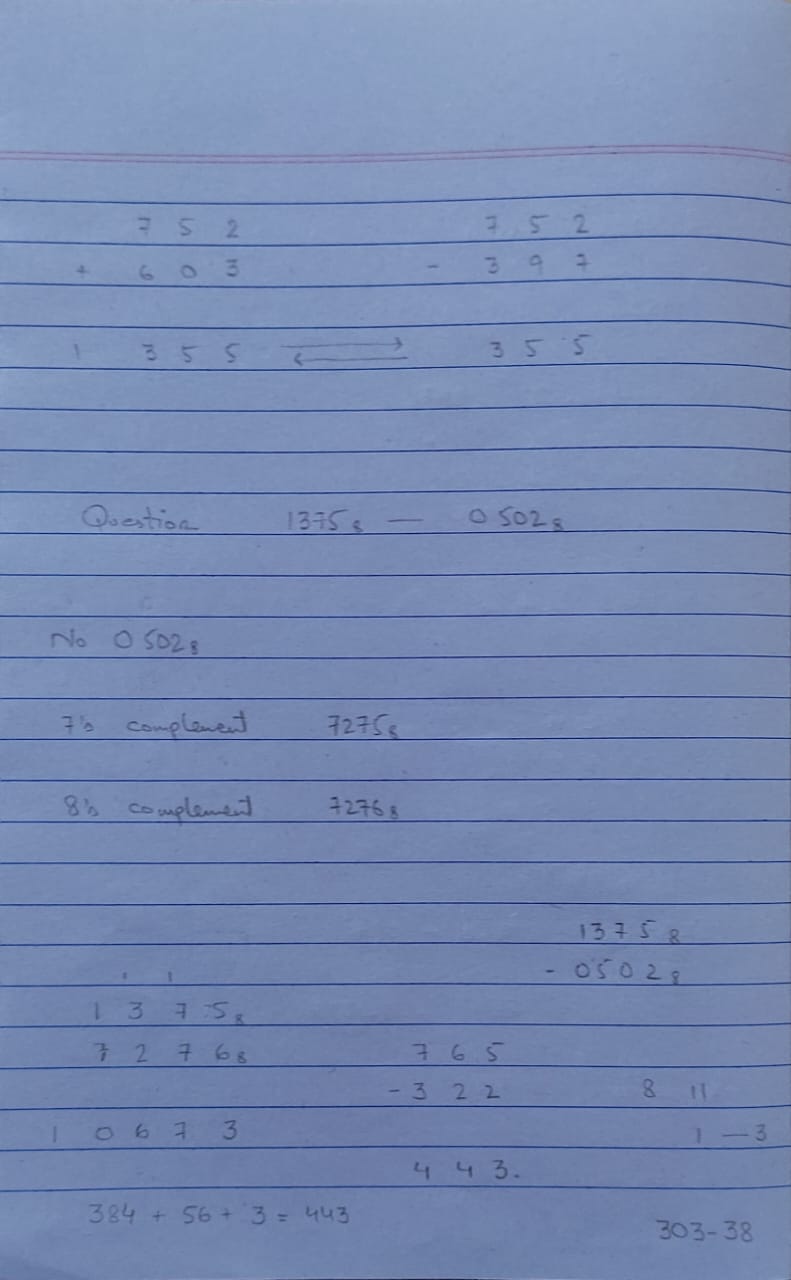 7 5 2 7 5 2
+ 6 0 3 - 3 9 7
1 3 5 5 ⇄ 3 5 5
Question 1375₈ — 0502₈
No 0502₈
7's complement 7275₈
8's complement 7276₈
1375₈
- 0502₈
1 1
1 3 7 5₈
7 2 7 6₈ 7 6 5
- 3 2 2 8 11
1 0 6 7 3 1 — 3
4 4 3.
384 + 56 + 3 = 443
303-38